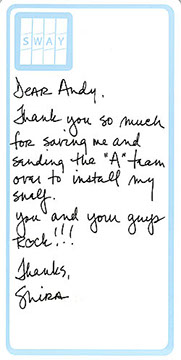 SWAY
Dear Andy,
Thank you so much
for saving me and
sending the "A" team
over to install my
shelf.
you and your guys
Rock!!!
Thanks,
Shira